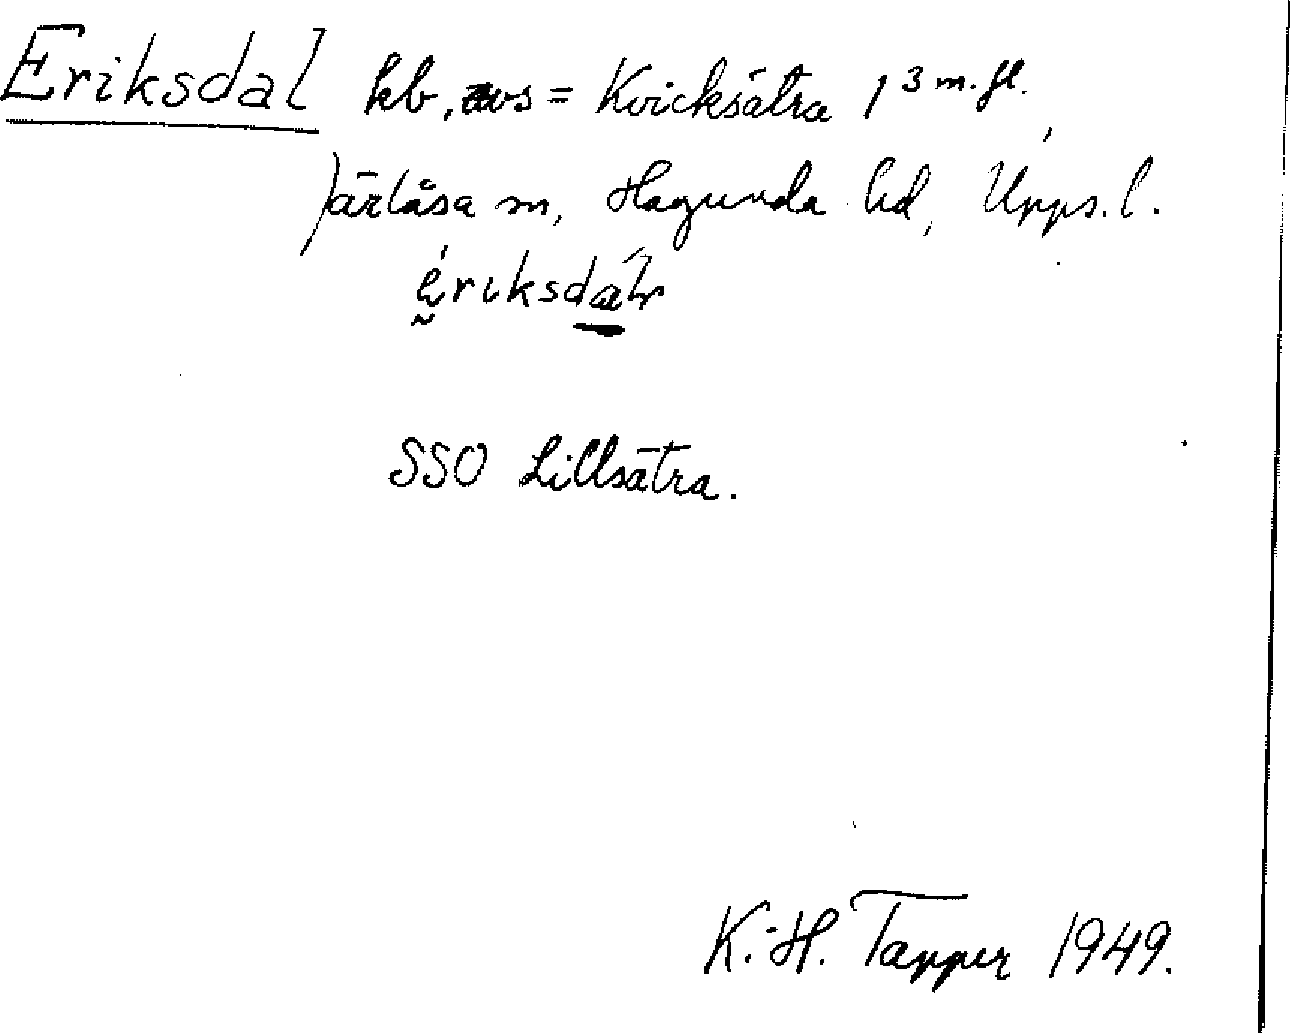 Eriksdal kb, avs = Kvicksätra 1³ m. fl.,
Järlåsa sn, Hagunda hd, Upps. l.
ériksdàl
SSO Lillsätra.
K.-H. Tapper 1949.